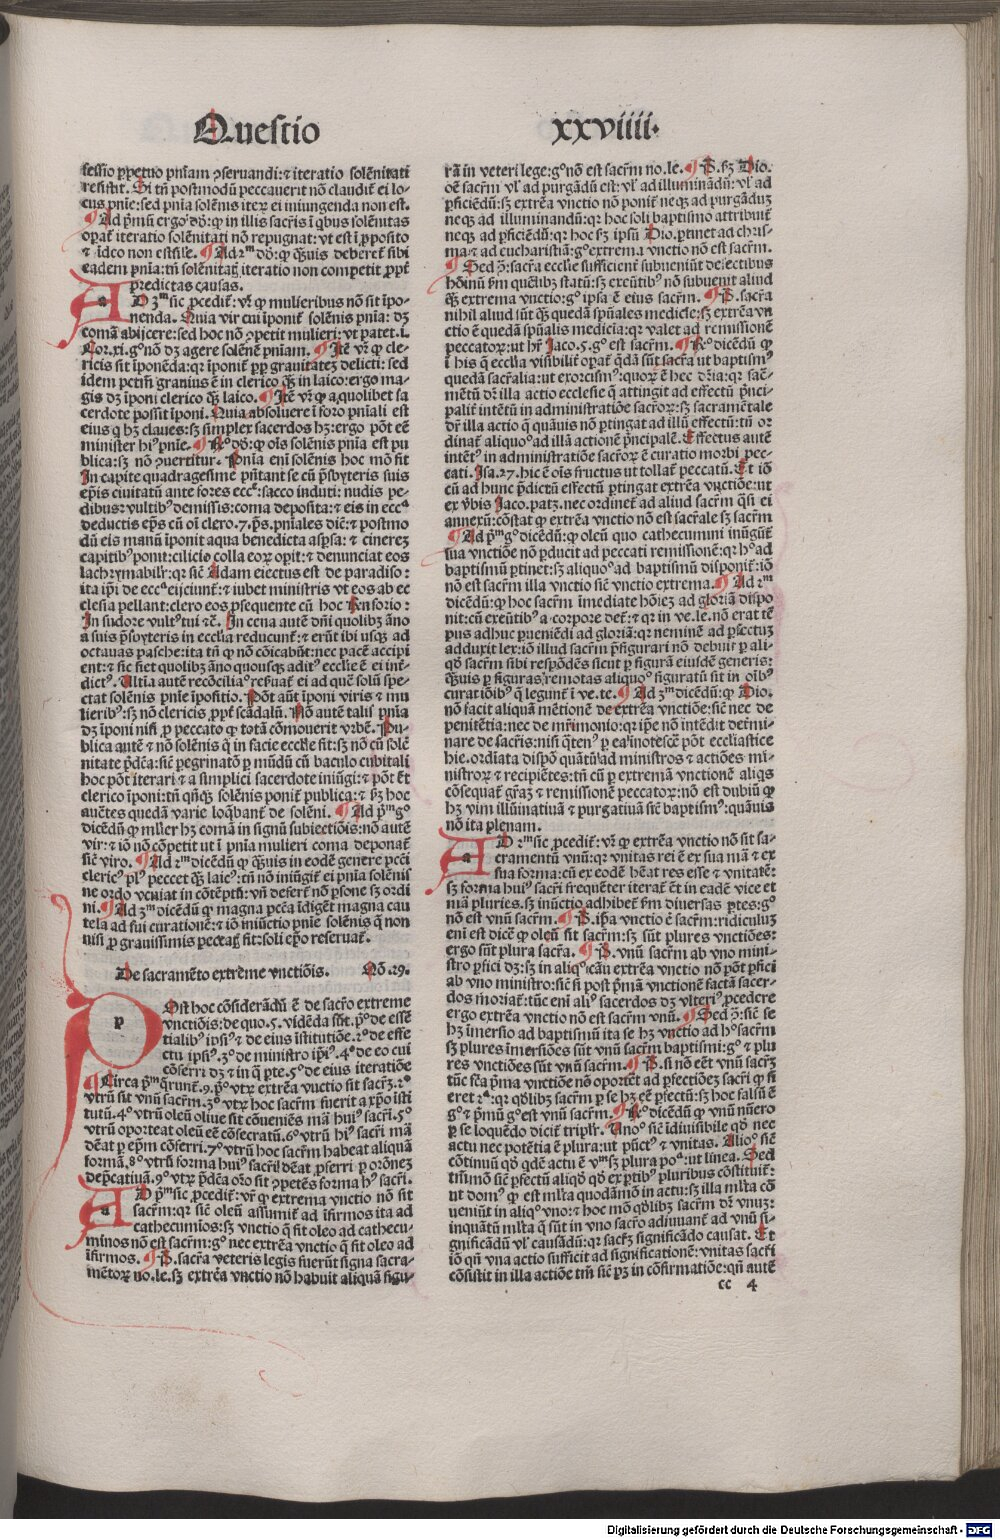 Questio
xxviiii.
fessio ꝑpetuo pn̄iam ꝯseruandi: ⁊ iteratio solēnitati
resistit. Si tn̄ postmodū peccauerit nō claudit᷑ ei lo-
cus pnīe: sed pnīa solēnis iteꝝ ei iniungenda non est.
Ad pͥmū ergo dd̄: ꝙ in illis sacr̄is ī qͥbus solēnitas
oꝑat᷑ iteratio solēnitati nō repugnat: vt est ī ꝓposito
⁊ ideo non est sile. Ad 2ᵐ dd̄: ꝙ q̄uis deberet᷑ sibi
eadem pnīa: tn̄ solēnitatꝭ iteratio non competit ꝓpt̄
predictas causas.
a
AD 3ᵐ sic ꝓcedit᷑: vr̄ ꝙ mulieribus nō sit īpo-
nenda. Quia vir cui īponit᷑ solēnis pnīa: dꝫ
comā abijcere: sed hoc nō ꝯpetit mulieri: vt patet .i.
Cor. xi. gͦ nō dꝫ agere solēnē pn̄iam. Itē vr̄ ꝙ cle-
ricis sit īponēda: qꝛ īponit᷑ ꝓp̄ grauitateꝫ delicti: sed
idem pctm̄ grauius ē in clerico q̄ꝫ in laico: ergo ma-
gis dꝫ īponi clerico q̄ꝫ laico. Itē vr̄ ꝙ a quolibet sa
cerdote possit īponi. Quia absoluere ī foro pnīali est
eius q̄ hꝫ claues: sꝫ simplex sacerdos hꝫ: ergo pōt eē
minister hiꝰ pnīe. Rͦ dd̄: ꝙ oīs solēnis pnīa est pu
blica: sꝫ nō ꝯuertitur. Pnīa eni solēnis hoc mō fit
In capite quadragesime pn̄tant se cū pn̄sbyteris suis
ep̄is ciuitatū ante fores eccᵉ: sacco induti: nudis pe-
dibus: vultibꝰ demissis: coma deposita: ⁊ eis in eccᵃ
deductis ep̄s cū oī clero .7. ps̄. pnīales dic̄: ⁊ postmo
dū eis manū īponit aqua benedicta asp̄sa: ⁊ cinereꝫ
capitibꝰ ponit: cilicio colla eoꝝ oꝑit: ⁊ denunciat eos
lachrymabilr̄: qꝛ sic̄ Adam eiectus est de paradiso:
ita ip̄i de eccᵃ eijciunt᷑: ⁊ iubet ministris vt eos ab ec
clesia pellant: clero eos ꝓsequente cū hoc Rensorio:
In sudore vultꝰ tui ⁊c̄. In cena autē dn̄i quolibꝫ āno
a suis pn̄sbyteris in ecclīa reducunt᷑: ⁊ erūt ibi usqꝫ ad
octauas pasche: ita tn̄ ꝙ nō cōicabūt: nec pacē accipi
ent: ⁊ sic fiet quolibꝫ āno quousqꝫ aditꝰ ecclīe ē ei int̄-
dictꝰ. Ultīa autē recōciliaͦ reẜuat᷑ ei ad quē solū spe-
ctat solēnis pnīe īpositio. Pōt aūt īponi viris ⁊ mu
lieribꝰ: sꝫ nō clericis ꝓpt̄ scādalū. Nō autē talis pnīa
dꝫ īponi nisi ꝓ peccato ꝙ totā cōmouerit vrbē. Pu-
blica autē ⁊ nō solēnis q̄ in facie ecclīe fit: sꝫ nō cū solē
nitate p̄dc̄a: sic̄ peregrinatō ꝑ mūdū cū baculo cubitali
hoc pōt iterari ⁊ a simplici sacerdote iniūgi: ⁊ pōt ēt
clerico īponi: tn̄ qn̄qꝫ solēnis ponit᷑ publica: ⁊ ẜm hoc
auētes quedā varie loqͥbant᷑ de solēni. Ad pͥmū gͦ
dicēdū ꝙ mlīer hꝫ comā in signū subiectiōis: nō autē
vir: ⁊ iō nō cōpetit ut ī pnīa mulieri coma deponat᷑
sic̄ viro. Ad 2ᵐ dicēdū ꝙ q̄uis in eodē genere pcc̄i
clericꝰ plꝰ peccet q̄ꝫ laicꝰ: tn̄ nō iniūgit᷑ ei pnīa solēnis
ne ordo veniat in cōtēptū: vn̄ defert᷑ nō ꝑsone sꝫ ordi
ni. Ad 3ᵐ dicēdū ꝙ magna pcc̄a īdigēt magna cau
tela ad sui curationē: ⁊ iō iniūctio pnīe solēnis q̄ non
nisi ꝓ grauissimis peccatꝭ fit: soli ep̄o reseruat᷑.
De sacramēto extreme vnctiōis. Dō .29.
p
POst hoc cōsiderādū ē de sacr̄o extreme
vnctiōis: de quo .5. vidēda sūt. pͦ de essē
tialibꝰ ipsiꝰ ⁊ de eius īstitutiōe. 2ͦ de effe
ctu ipsiꝰ. 3ͦ de ministro ipiꝰ. 4ͦ de eo cui
cōferri dꝫ ⁊ in q̄ pte. 5ͦ de eius iteratiōe
Circa pᵐ q̄runt᷑ .9. pͦ vtꝝ extrēa vnctio sit sacr̄ꝫ. 2ͦ
vtrū sit vnū sacr̄m. 3ͦ vtꝝ hoc sacr̄m fuerit a xp̄o īsti
tutū. 4ͦ vtrū oleū oliue sit cōueniēs mā huiꝰ sacr̄i. 5ͦ
vtrū oporteat oleū eē cōsecratū. 6ͦ vtrū hiꝰ sacr̄i mā
dēat ꝑ ep̄m cōferri. 7ͦ vtrū hoc sacr̄m habeat aliquā
formā. 8ͦ vtrū forma huiꝰ sacr̄i dēat ꝓferri ꝑ orōneꝫ
dep̄catiuā. 9ͦ vtꝝ p̄dc̄a orō sit ꝯpetēs forma hꝰ sacr̄i.
a
AD pᵐ sic ꝓcedit᷑: vr̄ ꝙ extrema vnctio nō sit
sacr̄m: qꝛ sic̄ oleū assumit᷑ ad īfirmos ita ad
cathecumīos: sꝫ vnctio q̄ fit oleo ad cathecu-
minos nō est sacr̄m: gͦ nec extrēa vnctio q̄ fit oleo ad
īfirmos. P̄. sacr̄a veteris legis fuerūt signa sacra-
mētoꝝ no. le. sꝫ extrēa vnctio nō habuit aliquā figu-
rā in veteri lege: gͦ nō est sacr̄m no. le. P̄. ẜm Dio.
oē sacr̄m vl̓ ad purgādū est: vl̓ ad illuminādū: vl̓ ad
ꝑficiēdū: sꝫ extrēa vnctio nō ponit᷑ neqꝫ ad purgāduꝫ
neqꝫ ad illuminandū: qꝛ hoc soli baptismo attribuit᷑
neqꝫ ad ꝑficiēdū: qꝛ hoc ẜm ipsū Dio. ꝑtinet ad chris-
ma ⁊ ad eucharistiā: gͦ extrēa vnctio nō est sacr̄m.
Sed ꝯͣ: sacr̄a ecclīe sufficient᷑ subueniūt defectibus
hoīnū ẜm quēlibꝫ statū: sꝫ exeūtibꝰ nō subuenit aliud
q̄ꝫ extrema vnctio: gͦ ipsa ē eius sacr̄m. P̄. sacr̄a
nihil aliud sūt q̄ꝫ quedā spūales medicīe: sꝫ extrēa vn
ctio ē quedā spūalis medicia: qꝛ valet ad remissionē
peccatoꝝ: ut hr̄ Jaco. 5. gͦ est sacr̄m. Rͦ dicēdū ꝙ
ī his q̄ ecclīa visibilit᷑ oꝑat᷑ q̄dā sūt sacr̄a ut baptismꝰ
quedā sacr̄alia: ut exorcismꝰ: quoꝝ ē hec dr̄ia: qꝛ sac̄-
mētū dr̄ illa actio ecclesie q̄ attingit ad effectū p̄nci-
palit᷑ intētū in administratiōe sacr̄oꝝ: sꝫ sacramētale
dr̄ illa actio q̄ quāuis nō ꝑtingat ad illū effectū: tn̄ or
dinat᷑ aliquoͦ ad illā actionē p̄ncipalē. Effectus autē
intētꝰ in administratiōe sacr̄oꝝ ē curatio morbi pec-
cati. Isa. 27. hic ē oīs fructus ut tollat᷑ peccatū. Et iō
cū ad hunc p̄dictū effectū ꝑtingat extrēa vnctiōe: ut
ex v̓bis Jaco. patꝫ. nec ordinet᷑ ad aliud sacr̄m q̄si ei
annexū: cōstat ꝙ extrēa vnctio nō est sacr̄ale sꝫ sacr̄m
Ad pᵐ gͦ dicēdū: ꝙ oleū quo cathecumini inūgūt᷑
sua vnctiōe nō ꝑducit ad peccati remissionē: qꝛ hoͦ ad
baptismū ꝑtinet: sꝫ aliquoͦ ad baptismū disponit᷑: iō
nō est sacr̄m illa vnctio sic̄ vnctio extrema. Ad 2ᵐ
dicēdū: ꝙ hoc sacr̄m īmediate hoīeꝫ ad gloriā dispo
nit: cū exeūtibꝰ a corpore det᷑: ⁊ qꝛ in ve. le. nō erat tē
pus adhuc ꝑueniēdi ad gloriā: qꝛ neminē ad ꝑfectuꝫ
adduxit lex: iō illud sacr̄m p̄figurari nō debuit ꝑ ali-
qd̄ sacr̄m sibi respōdēs sicut ꝑ figurā eiusdē generis:
q̄uis ꝑ figuras remotas aliquoͦ figuratū sit in oībꝰ
curatiōibꝰ q̄ legunt᷑ ī ve. te. Ad 3ᵐ dicēdū: ꝙ Dio.
nō facit aliquā mētionē de extrēa vnctiōe: sic̄ nec de
penitētia: nec de mr̄imonio: qꝛ ip̄e nō intēdit deter̄mi-
nare de sacr̄is: nisi q̄tenꝰ ꝑ ea īnotescē pōt ecclīastice
hie. ordiata dispō quātū ad ministros ⁊ actiōes mi-
nistroꝝ ⁊ recipiētes: tn̄ cū ꝑ extremā vnctionē aliqs
cōsequat᷑ gr̄aꝫ ⁊ remissionē peccatoꝝ: nō est dubiū ꝙ
hꝫ vim illūinatiuā ⁊ purgatiuā sic̄ baptismꝰ: quāuis
nō ita plenam.
a
AD 2ᵐ sic ꝓcedit᷑: vr̄ ꝙ extrēa vnctio nō sit sa-
cramentū vnū: qꝛ vnitas rei ē ex sua mā ⁊ ex
sua forma: cū ex eodē hēat res esse ⁊ vnitatē:
sꝫ forma huiꝰ sacr̄i frequēter iterat᷑ ēt in eadē vice et
mā pluries. sꝫ inūctio adhibet᷑ ẜm diuersas ꝑtes: gͦ
nō est vnū sacr̄m. P̄. ip̄a vnctio ē sacr̄m: ridiculuꝫ
eni est dicē ꝙ oleū sit sacr̄m: sꝫ sūt plures vnctiōes:
ergo sūt plura sacr̄a. P̄. vnū sacr̄m ab vno mini-
stro ꝑfici dꝫ: sꝫ in aliqͦ cāu extrēa vnctio nō pōt ꝑfici
ab vno ministro: sic̄ si post pͥmā vnctionē factā sacer-
dos moriat᷑: tūc eni aliꝰ sacerdos dꝫ vlteriꝰ ꝓcedere
ergo extrēa vnctio nō est sacr̄m vnū. Sed ꝯͣ: sic̄ se
hꝫ īmersio ad baptismū ita se hꝫ vnctio ad hͦ sacr̄m
sꝫ plures īmersiōes sūt vnū sacr̄m baptismi: gͦ ⁊ plu
res vnctiōes sūt vnū sacr̄m. P̄. si nō eēt vnū sacr̄ꝫ
tūc fc̄a pͥma vnctiōe nō oportēt ad ꝑfectiōeꝫ sacr̄i ꝙ fi
eret 2ᵃ: qꝛ qd̄libꝫ sacr̄m ꝑ se hꝫ eē ꝑfectū: sꝫ hoc falsū ē
gͦ ⁊ pͥmū gͦ est vnū sacr̄m. Rͦ dicēdū ꝙ vnū nūero
ꝑ se loquēdo dicit᷑ triplr̄. Unoͦ sic̄ īdiuisibile qd̄ nec
actu nec potētia ē plura: ut pūctꝰ ⁊ vnitas. Alioͦ sic̄
cōtinuū qd̄ qdē actu ē vᵐ sꝫ plura poᵃ: ut linea. Sed
tissimō sic̄ ꝑfectū aliqd̄ qd̄ ex ꝑtibꝰ pluribus cōstituit᷑:
ut domꝰ ꝙ est ml̄ta quodāmō in actu: sꝫ illa ml̄ta cō
ueniūt in aliqͦ vno: ⁊ hoc mō qd̄libꝫ sacr̄m dr̄ vnuꝫ:
inquātū ml̄ta q̄ sūt in vno sacr̄o adiuuant᷑ ad vnū si-
gnificādū vl̓ causādū: qꝛ sacr̄ꝫ significādo causat. Et
iō qn̄ vna actio sufficit ad significationē: vnitas sacr̄i
cōsistit in illa actiōe tm̄ sic̄ pꝫ in cōfirmatiōe: qn̄ autē
cc 4
Digitalisierung gefördert durch die Deutsche Forschungsgemeinschaft - DFG